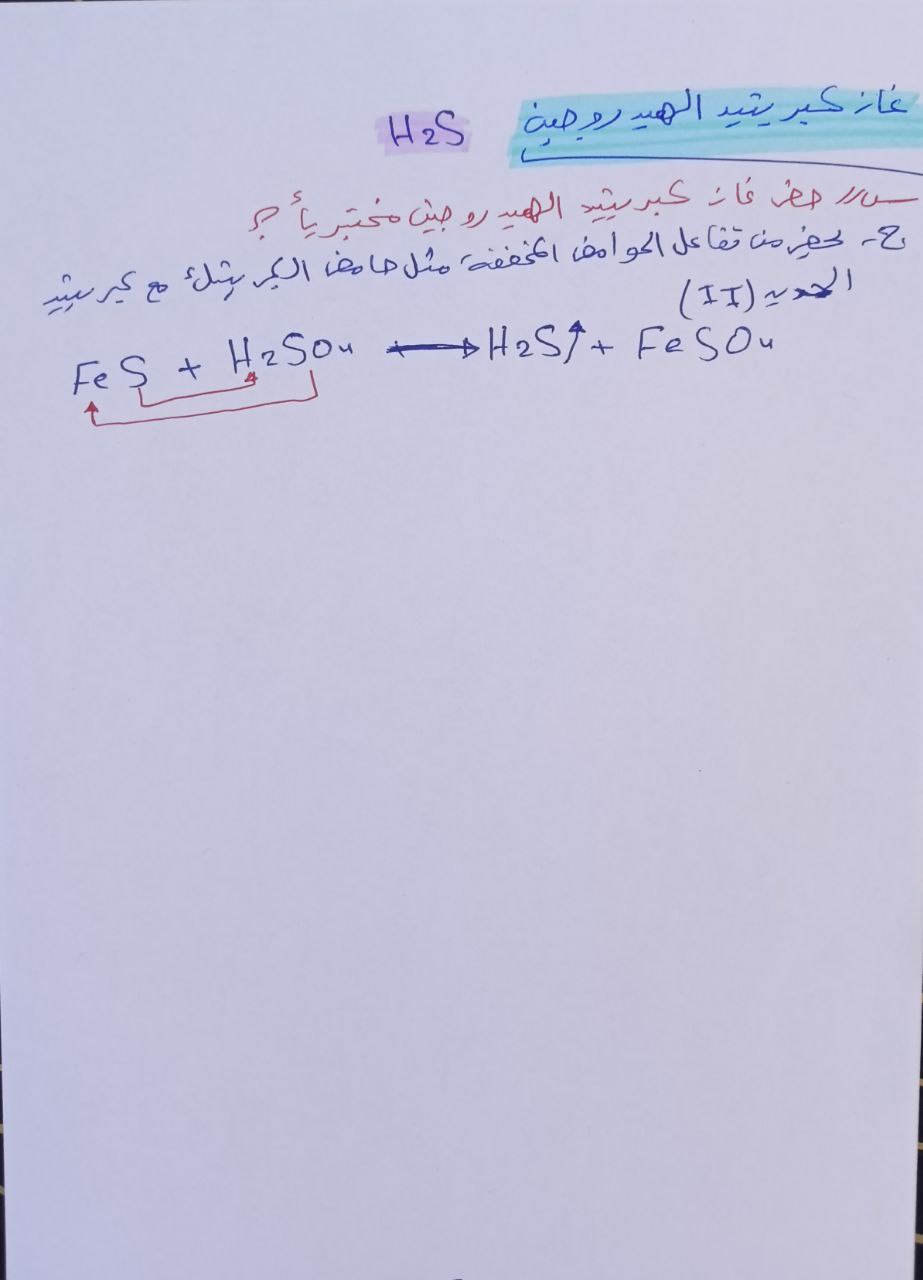 غاز كبريتيد الهيدروجين H2S
س// حضر غاز كبريتيد الهيدروجين مختبرياً ؟
ج- يحضر من تفاعل الحوامض المخففة مثل حامض الكبريتيك مع كبريتيد
الحديد (II)
FeS + H2SO4 ⟶ H2S↑ + FeSO4